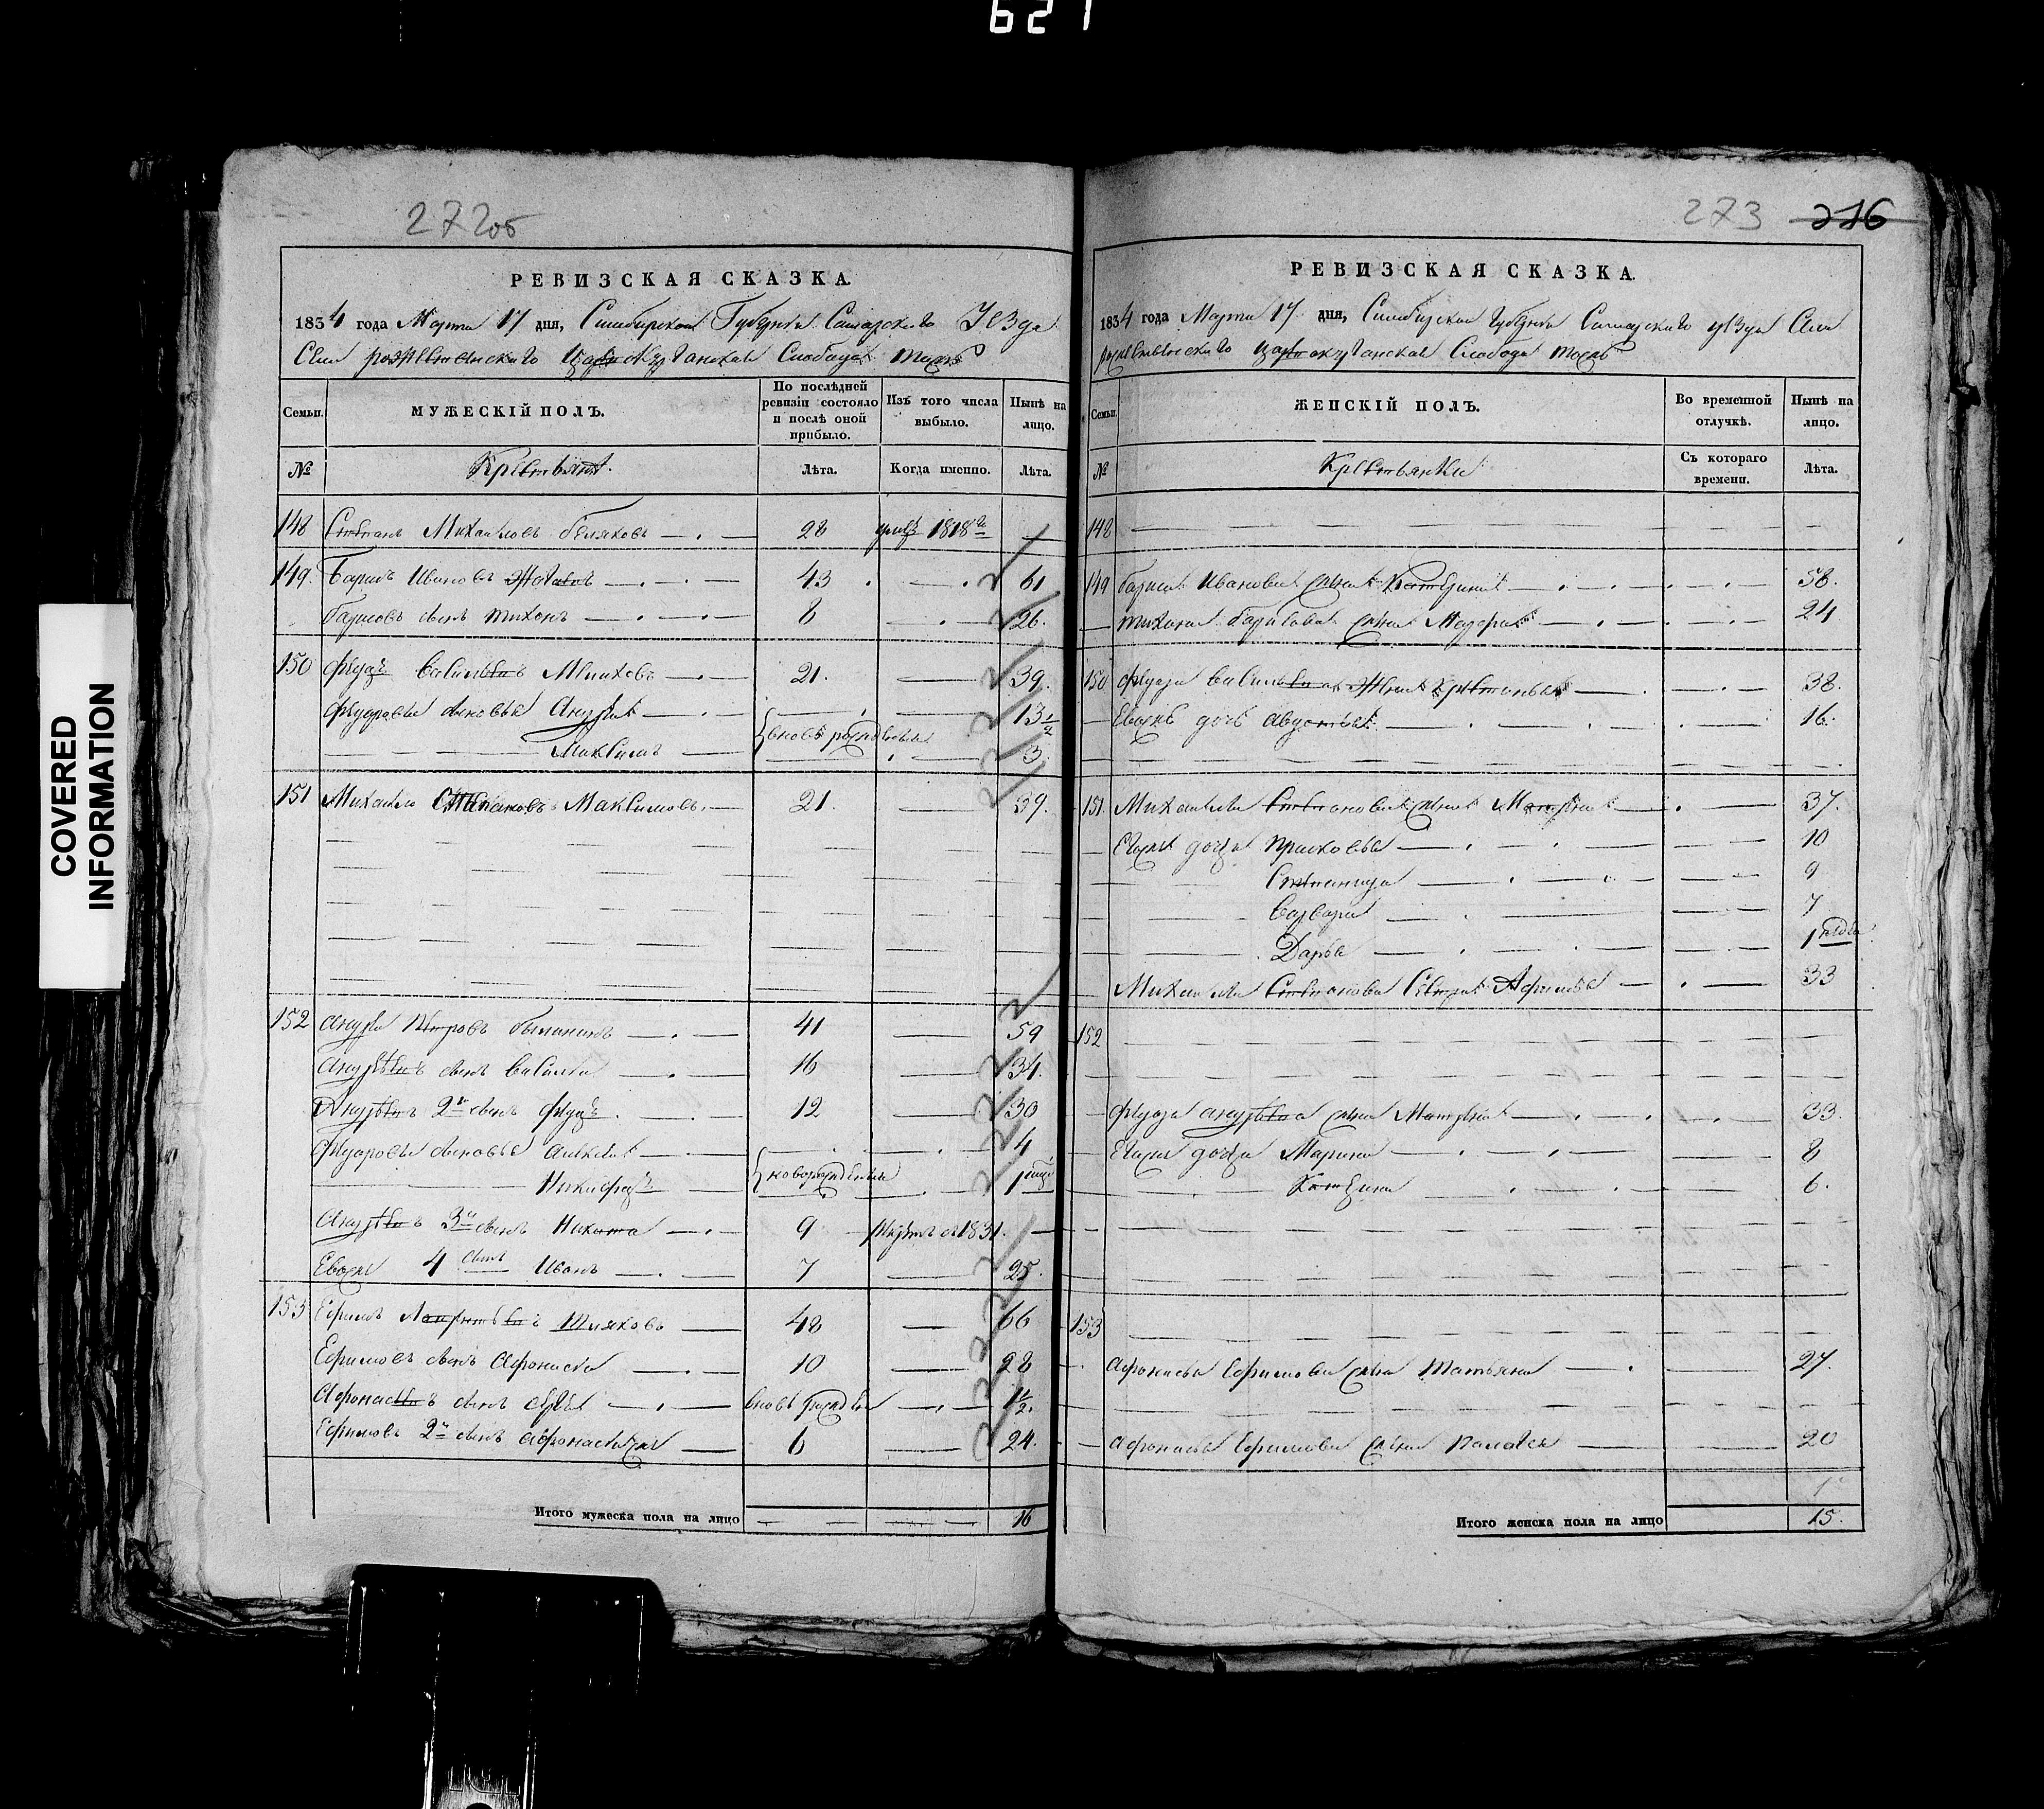 621
COVERED
INFORMATION
272об
РЕВИЗСКАЯ СКАЗКА.
1834 года Марта 17 дня, Симбирской Губернии Самарского Уезда
Села рождественского Слобода тожъ
Семьи. МУЖЕСКІЙ ПОЛЪ. По послѣдней ревизіи состояло и послѣ оной прибыло. Изъ того числа выбыло. Нынѣ на лицо.
№ Лѣта. Когда именно. Лѣта.
148 Степанъ Михаиловъ Беляковъ 28 1818
149. Борисъ Ивановъ 43 61
Борисовъ сынъ тихонъ 8 26.
150 Федоръ Васильевъ 21. 39.
Федоровы сыновья Андрей 13 1/2
вновь рожденные
Максимъ 3
151 Михайло Степановъ Максимовъ 21. 39.
152 Андрей Петровъ 41 59
Андреевъ сынъ Василей 16 34.
Андреевъ 2й сынъ Федоръ. 12 30
Федоровы сыновья Алексей 4
новорожденныи
Никифоръ 1
Андреевъ 3й сынъ Никита 9 1831.
Евожъ 4 сынъ Иванъ 7 25.
153 Ефимъ 48 66
Ефимовъ сынъ Афонасей 10 28
Афонасьевъ сынъ вновь рожден 1/2.
Ефимовъ 2й сынъ Афонасей 6 24.
Итого мужеска пола на лицо 16
273 216
РЕВИЗСКАЯ СКАЗКА.
1834 года Марта 17 дня, Симбирской Губернии Самарского уезда Села
рождественского Слобода тожъ
Семьи. ЖЕНСКІЙ ПОЛЪ. Во временной отлучкѣ. Нынѣ на лицо.
№ Крестьянки Съ котораго времени. Лѣта.
148
149 Бориса Иванова жена Катерина 58.
тихона Борисова жена 24
150 Федора Васильева жена 38.
Евожъ дочь Авдотья 16.
151. Михаилы Степанова жена 37.
Егожъ дочери Прасковья 10
Степанида 9
Варвара 7
Дарья 1
Михаилы Степанова Сестра Афимья 33
152
Федора Андреева жена Матрена 33.
Егожъ дочери Марина 8
Катерина 6.
153
Афонасья Ефимова жена Татьяна 27.
Афонасья Ефимова жена 20
Итого женска пола на лицо 15.